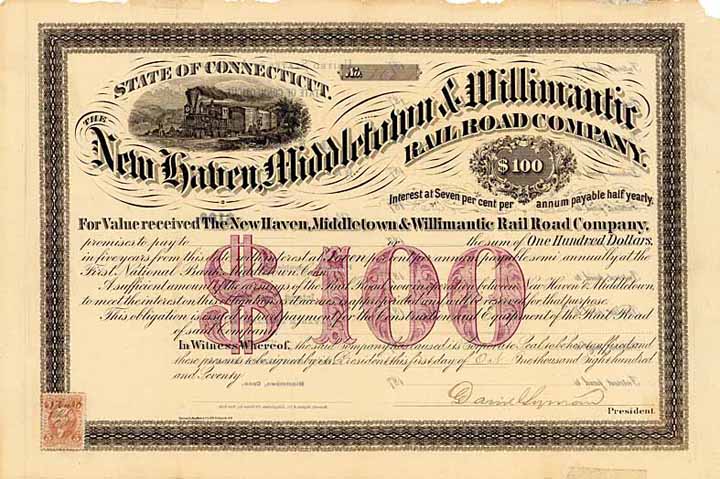 STATE OF CONNECTICUT.
No.
THE
New Haven, Middletown & Willimantic
RAIL ROAD COMPANY.
$100
Interest at Seven per cent per annum payable half yearly.
For Value received The New Haven, Middletown & Willimantic Rail Road Company,
promises to pay to or the sum of One Hundred Dollars,
in five years from this date semi annually at the
First National Bank, Middletown, Conn.
A sufficient amount of the earnings of the Rail Road now in operation between New Haven & Middletown,
to meet the interest on this obligation as it accrues is appropriated and will be reserved for that purpose.
This obligation is issued in part payment for the Construction and Equipment of the Rail Road
of said Company.
In Witness Whereof, the said Company has caused its Corporate Seal to be hereto affixed and
these presents to be signed by its President this first day of Oct. One thousand Eight hundred
and Seventy
$100
Daniel Lyman
President.